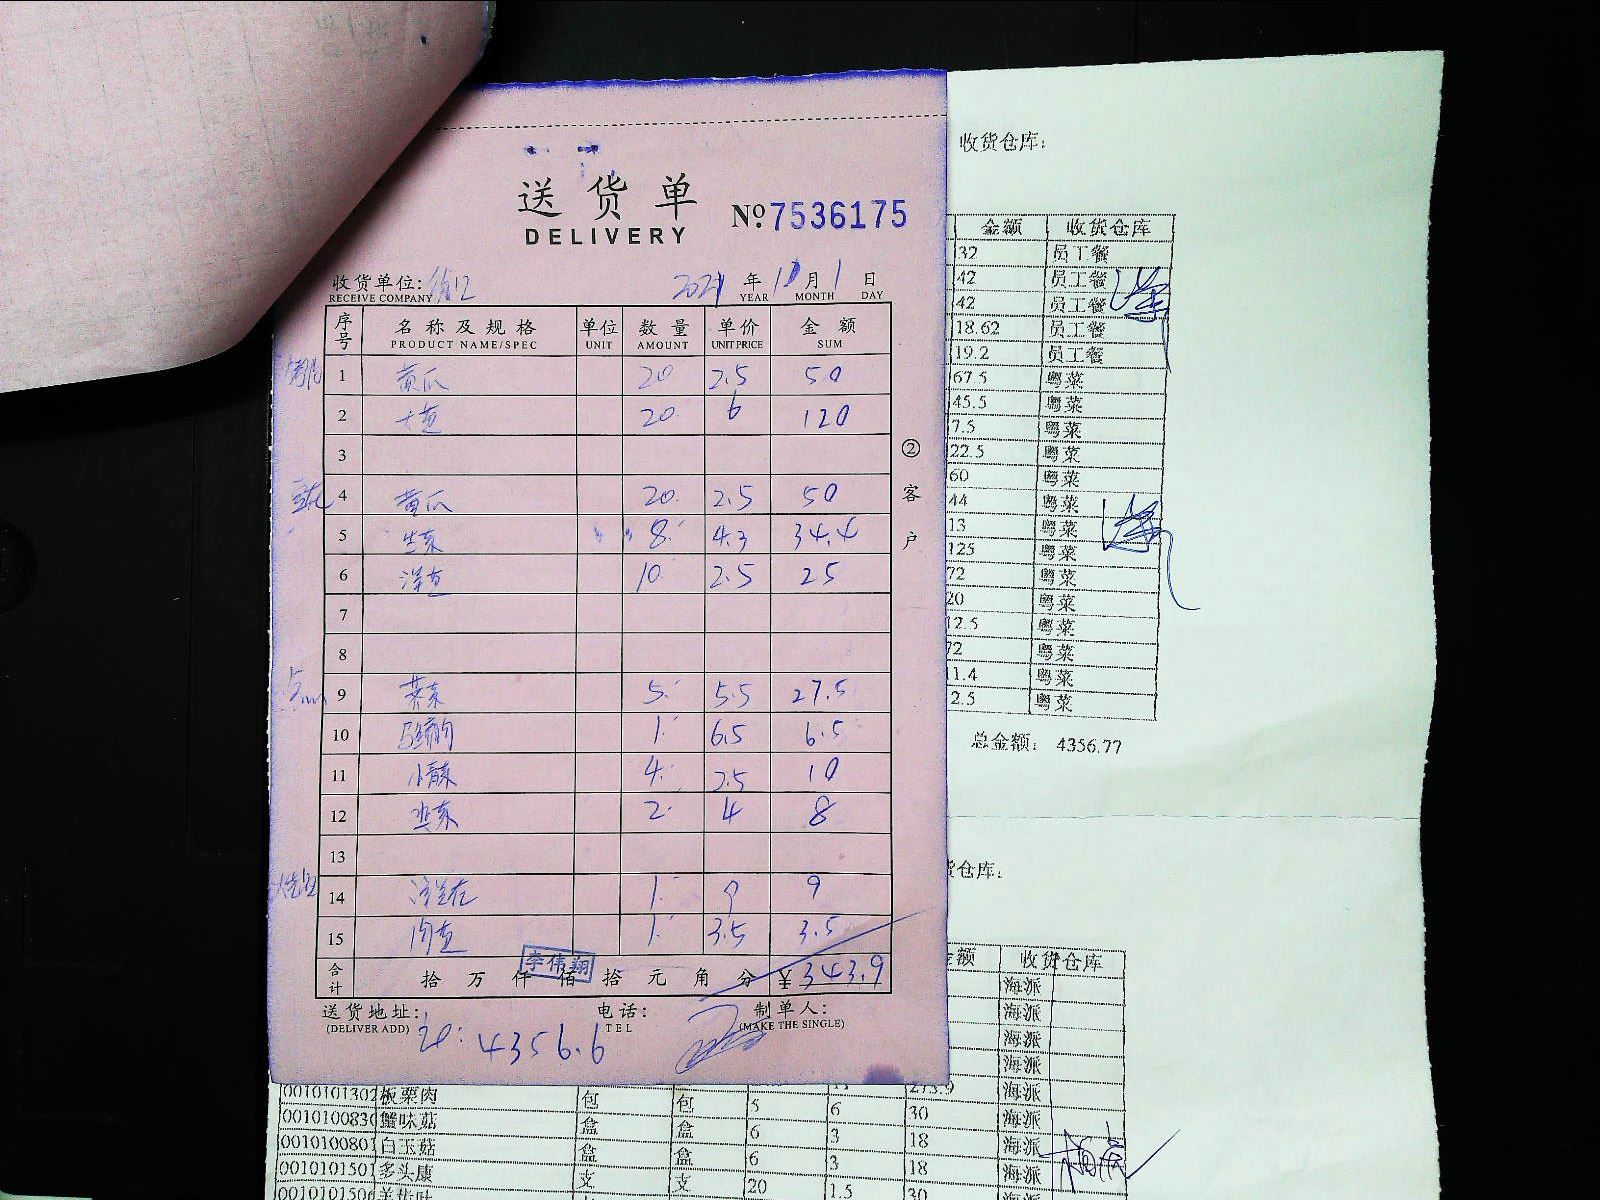 送货单
DELIVERY
No. 7536175
收货单位:
RECEIVE COMPANY
2021 年 10 月 1 日
YEAR MONTH DAY
序号 名称及规格 单位 数量 单价 金额
PRODUCT NAME/SPEC UNIT AMOUNT UNIT PRICE SUM
1 黄瓜 20 2.5 50
2 大青 20 6 120
3
4 黄瓜 20 2.5 50
5 生菜 8 4.3 34.4
6 洋葱 10 2.5 25
7
8
9 5 5.5 27.5
10 1 6.5 6.5
11 小青菜 4 2.5 10
12 韭菜 2 4 8
13
14 1 9 9
15 1 3.5 3.5
合计 拾 万 仟 佰 拾 元 角 分 ¥343.9
李伟翔
送货地址: 电话: 制单人:
(DELIVER ADD) TEL (MAKE THE SINGLE)
4356.6
②客户
收货仓库:
金额 收货仓库
32 员工餐
42 员工餐
42 员工餐
18.62 员工餐
19.2 员工餐
67.5 粤菜
45.5 粤菜
7.5 粤菜
22.5 粤菜
60 粤菜
44 粤菜
13 粤菜
125 粤菜
72 粤菜
20 粤菜
12.5 粤菜
72 粤菜
11.4 粤菜
2.5 粤菜
总金额: 4356.77
货仓库:
金额 收货仓库
海派
海派
海派
海派
海派
0010101302 板栗肉 包 包 5 6 30 海派
001010083 蟹味菇 盒 盒 6 3 18 海派
001010080 白玉菇 盒 盒 6 3 18 海派
0010101501 多头康 支 支 20 1.5 30